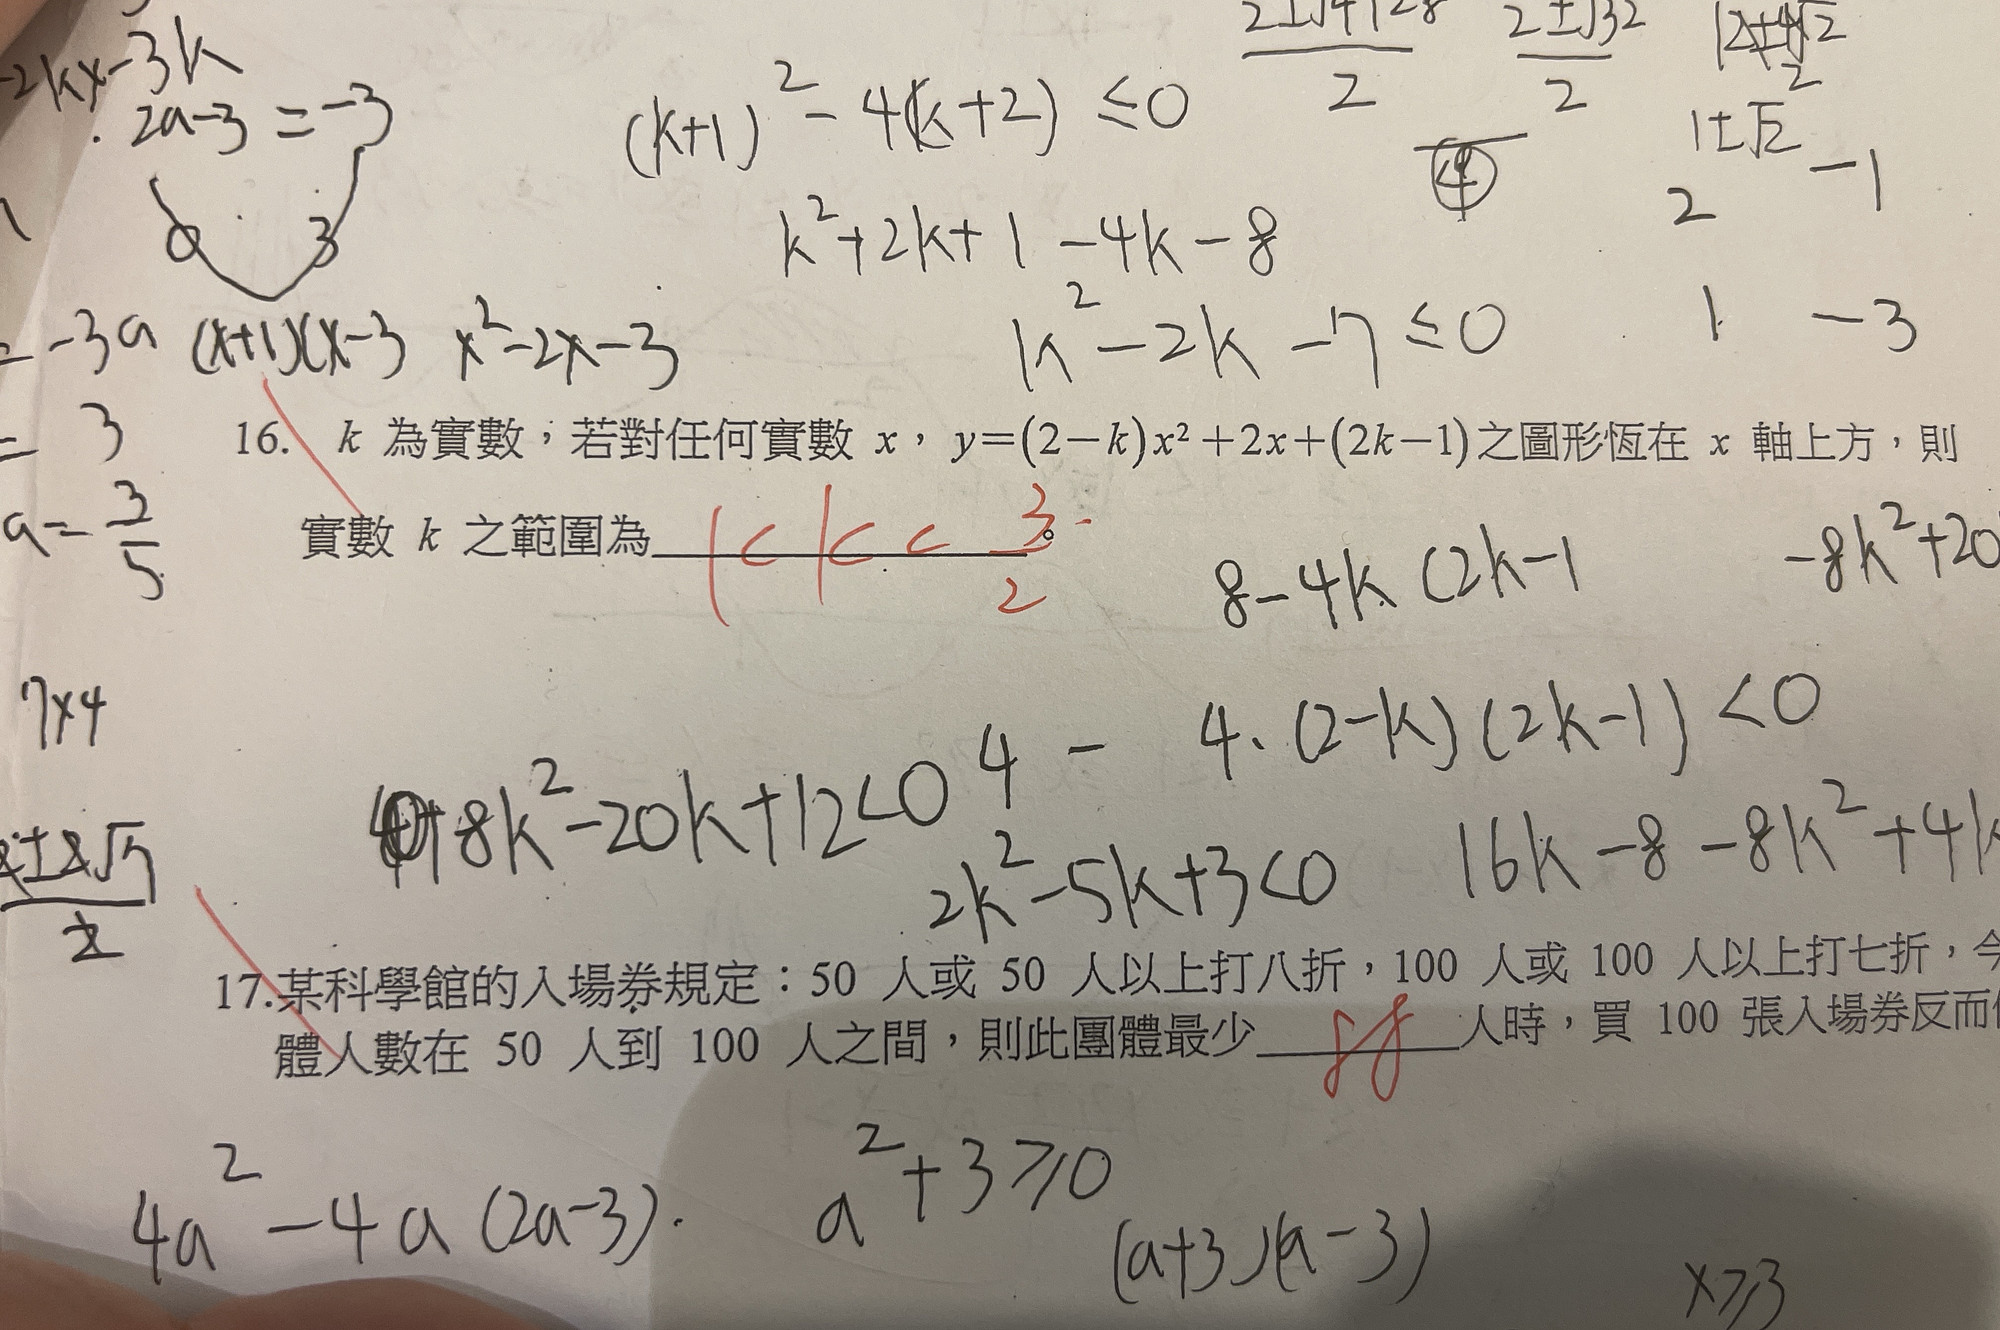 -2kx-3k
2a-3=-3
3
(k+1)²-4(k+2)≤0
k²+2k+1-4k-8
k²-2k-7≤0
2±√32
2
2
1±√2
④
2 -1
1 -3
=-3a (x+1)(x-3 x²-2x-3
= 3
a=3/5
16. k 為實數,若對任何實數 x,y=(2-k)x²+2x+(2k-1)之圖形恆在 x 軸上方,則
實數 k 之範圍為 1<k<3/2 。
8-4k (2k-1
-8k²+20
7x4
4 - 4·(2-k)(2k-1)<0
8k²-20k+12<0
2k²-5k+3<0
16k-8-8k²+4k
17.某科學館的入場券規定:50 人或 50 人以上打八折,100 人或 100 人以上打七折,今
體人數在 50 人到 100 人之間,則此團體最少 88 人時,買 100 張入場券反而
4a²-4a(2a-3).
a²+3≥0
(a+3)(a-3)
x≥3